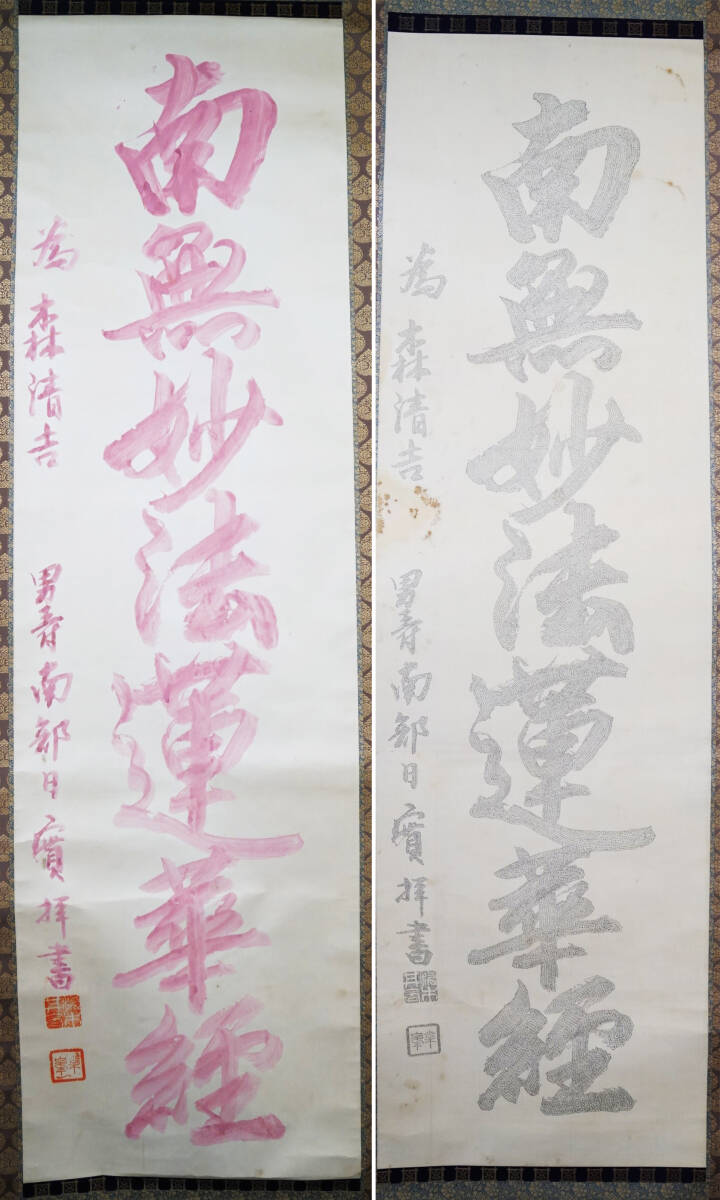 南無妙法蓮華經
為 森清吉
男爵南部日實拝書
南無妙法蓮華經
為 森清吉
男爵南部日實拝書